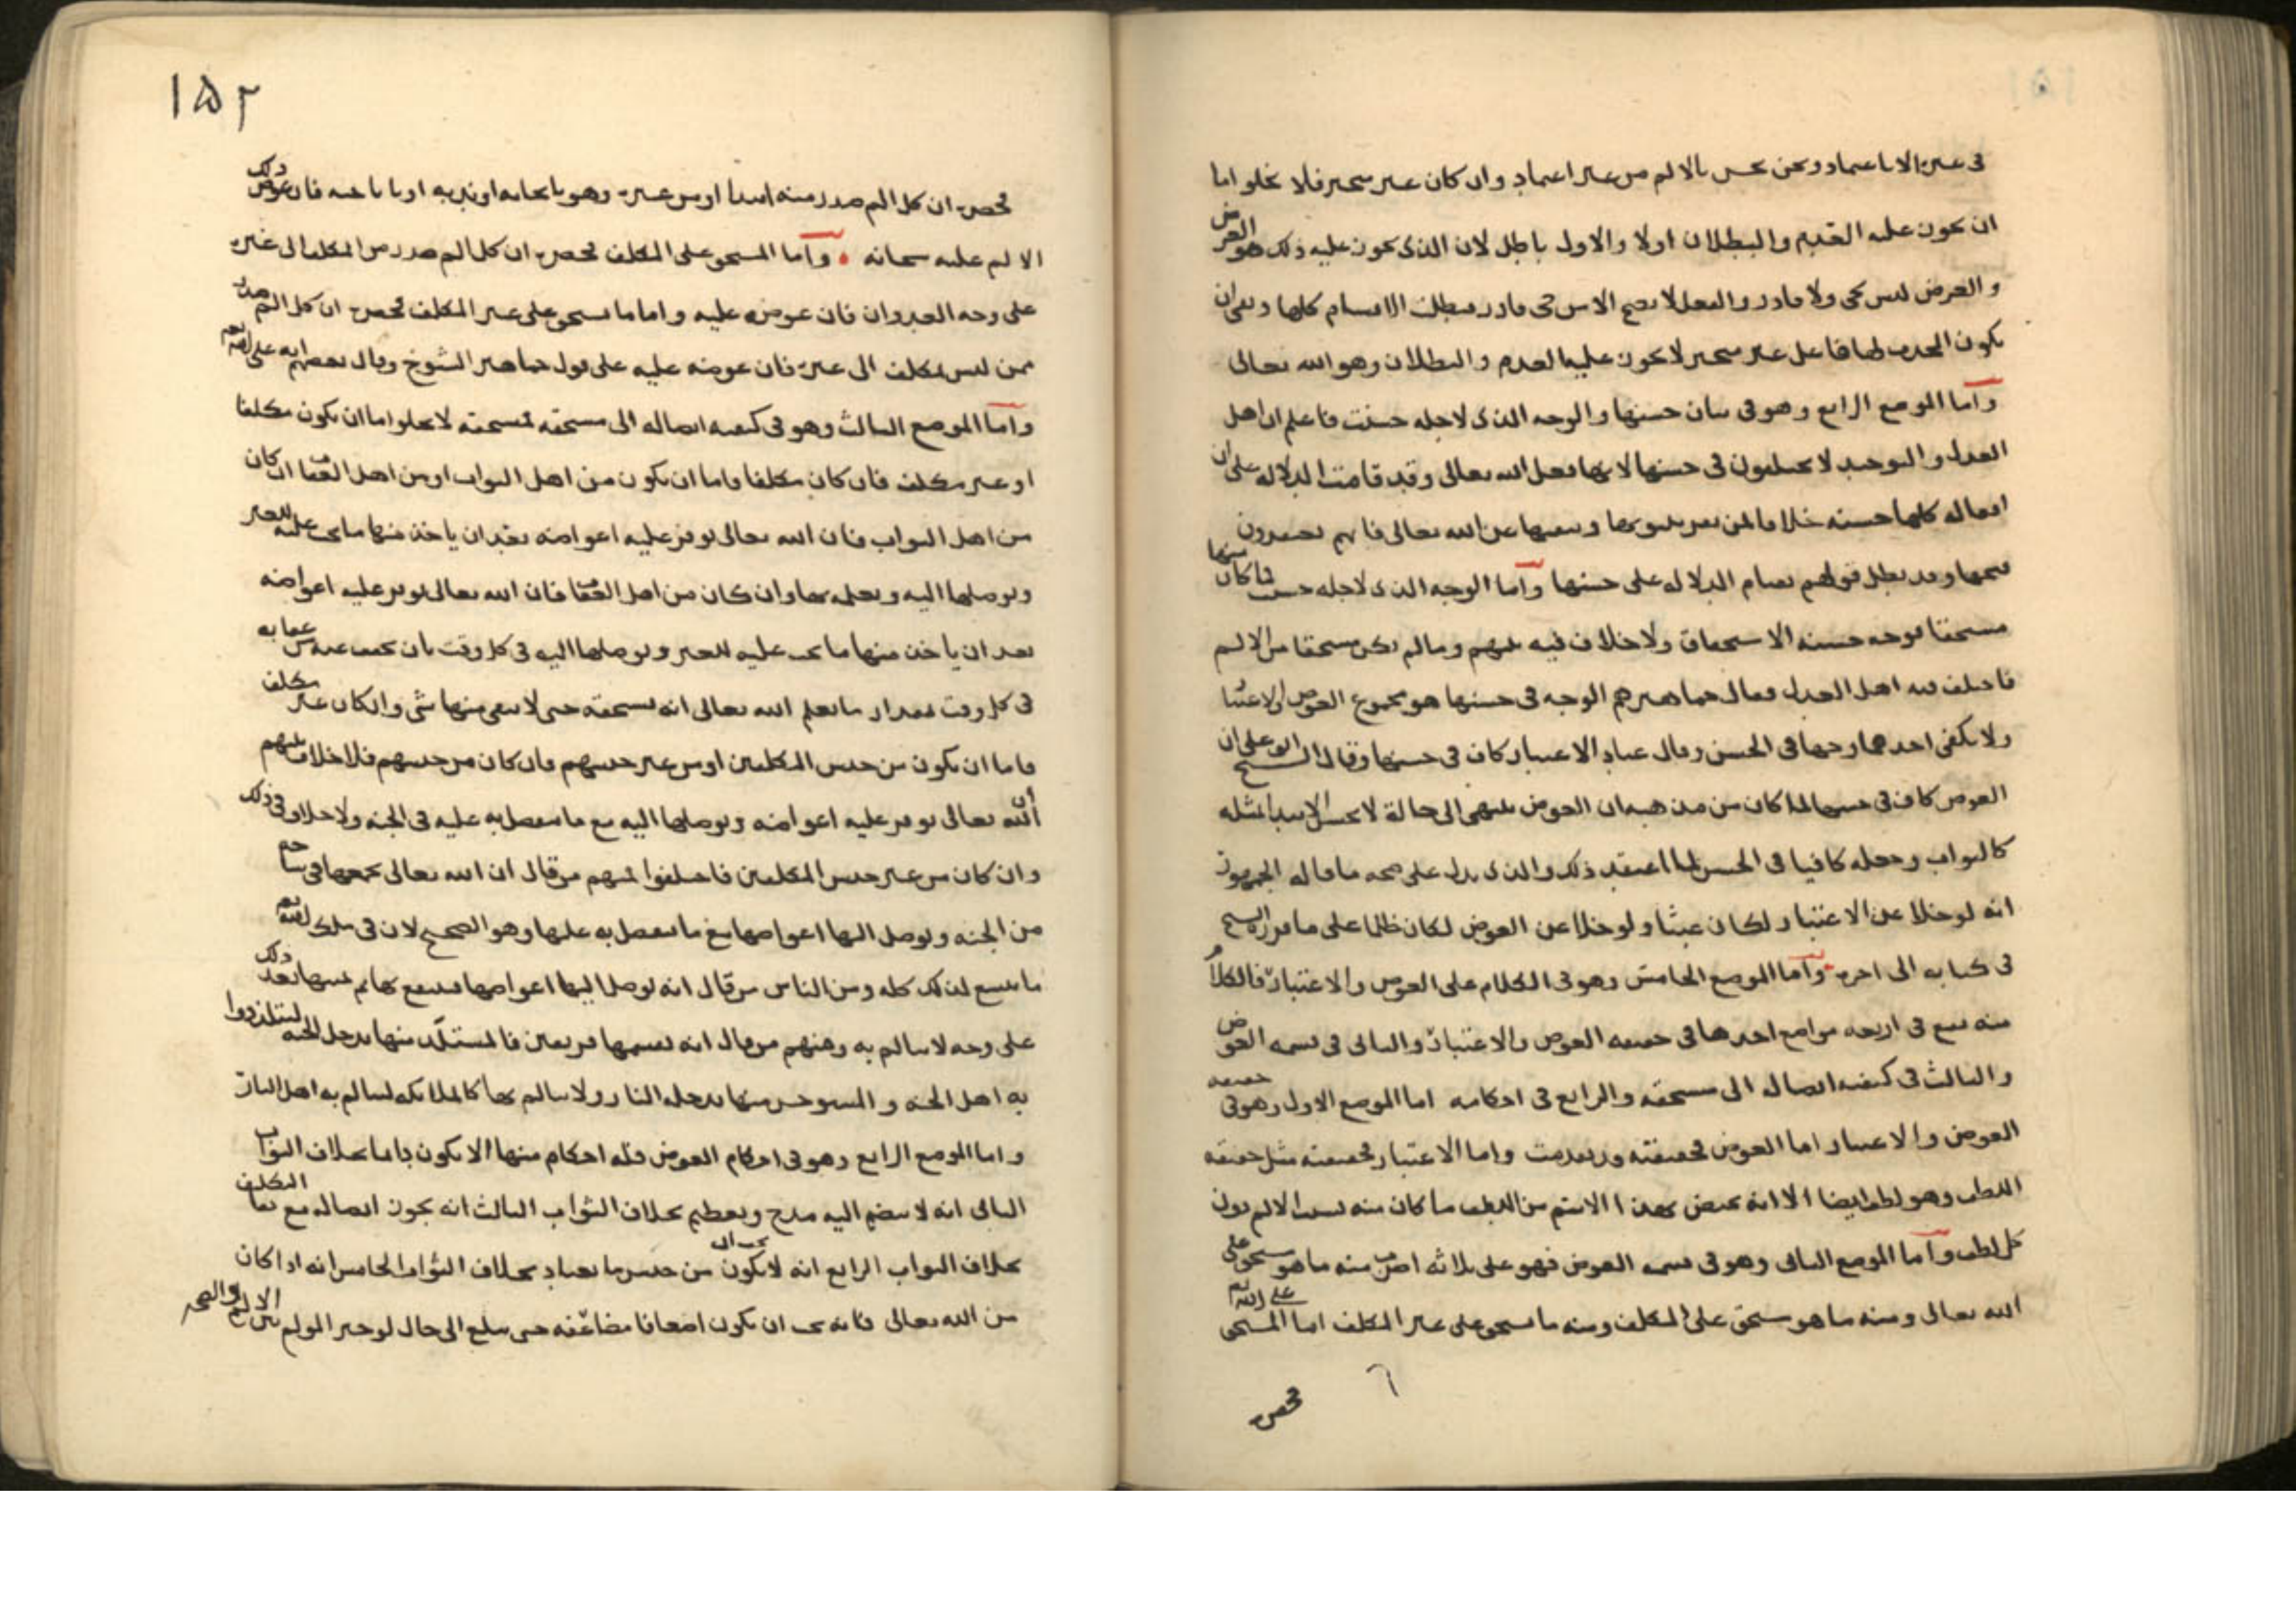 في غيره الا باعتماد ونحن نحس بالالم من غير اعتماد وان كان غير متحيز فلا يخلو اما
ان يجوز عليه العدم والبطلان اولا والاول باطل لان الذي يجوز عليه ذلك هو العرض
والعرض ليس بحي ولا قادر والفعل لا يصح الا من حي قادر فبطلت الاقسام كلها وبقي ان
يكون المحدث لها فاعل غير متحيز لا يجوز عليه العدم والبطلان وهو الله تعالى
واما الموضع الرابع وهو في بيان حسنها والوجه الذي لاجله حسنت فاعلم ان اهل
العدل والتوحيد لا يختلفون في حسنها لانها فعل الله تعالى وقد قامت الدلالة على ان
افعاله كلها حسنة خلافا لمن وينفيها عن الله تعالى فانهم يعتقدون
قبحها وقد بطل قولهم بقيام الدلالة على حسنها واما الوجه الذي لاجله حسنت فما كان منها
مستحقا فوجه حسنه الاستحقاق ولا خلاف فيه بينهم وما لم يكن مستحقا من الالم
فاختلف فيه اهل العدل فقال جماهيرهم الوجه في حسنها هو مجموع العوض والاعتبار
ولا يكفي احدهما وجها في الحسن وقال عباد الاعتبار كاف في حسنها وقال الشيخ ابو علي ان
العوض كاف في حسنها لما كان من مذهبه ان العوض ينتهي الى حالة لا يحسن الابتداء بمثله
كالثواب وجعله كافيا في الحسن لما اعتقد ذلك والذي يدل على صحة ما قاله الجمهور
انه لو خلا عن الاعتبار لكان عبثا ولو خلا عن العوض لكان ظلما على ما قرره الشيخ
في كتابه الى اخره واما الموضع الخامس وهو في الكلام على العوض والاعتبار فالكلام
منه يقع في اربعة مواضع احدها في حقيقة العوض والاعتبار والثاني في قسمة العوض
والثالث في كيفية ايصاله الى مستحقه والرابع في احكامه اما الموضع الاول وهو في حقيقة
العوض والاعتبار اما العوض فحقيقته قد تقدمت واما الاعتبار فحقيقته مثل حقيقة
اللطف وهو لطف ايضا الا انه يختص بهذا الاسم من اللطف ما كان منه لسبب الالم دون
كل لطف واما الموضع الثاني وهو في قسمة العوض فهو على ثلاثة اضرب منه ما هو مستحق على
الله تعالى ومنه ما هو مستحق على المكلف ومنه ما يستحق على غير المكلف اما المستحق على الله تع
فحصره
١٥٢
فحصره ان كل الم صدر منه ابتداء او من غيره وهو بايجابه او بندبه او باباحته فان عوض ذلك
الالم عليه سبحانه واما المستحق على المكلف فحصره ان كل الم صدر من المكلف الى غيره
على وجه العدوان فان عوضه عليه واما ما يستحق على غير المكلف فحصره ان كل الم صدر
ممن ليس بمكلف الى غيره فان عوضه عليه على قول جماهير الشيوخ وقال بعضهم انه على الله تع
واما الموضع الثالث وهو في كيفية ايصاله الى مستحقه فمستحقه لا يخلو اما ان يكون مكلفا
او غير مكلف فان كان مكلفا فاما ان يكون من اهل الثواب او من اهل العقاب ان كان
من اهل الثواب فان الله تعالى يوفر عليه اعواضه بعد ان ياخذ منها ما يجب عليه للغير
ويوصلها اليه ويعلمه بها وان كان من اهل العقاب فان الله تعالى يوفر عليه اعواضه
بعد ان ياخذ منها ما يجب عليه للغير ويوصلها اليه في كل وقت بان يخفف عنه من عقابه
في كل وقت بمقدار ما يعلم الله تعالى انه يستحقه حتى لا يبقى منها شي وان كان غير مكلف
فاما ان يكون من جنس المكلفين او من غير جنسهم فان كان من جنسهم فلا خلاف بينهم
ان الله تعالى يوفر عليه اعواضه ويوصلها اليه مع ما يتفضل به عليه في الجنة ولا خلاف في ذلك
وان كان من غير جنس المكلفين فاختلفوا فمنهم من قال ان الله تعالى يجمعها في
من الجنة ويوصل اليها اعواضها مع ما يتفضل به عليها وهو الصحيح لان في ملك الله تع
ما يتسع لذلك كله ومن الناس من قال انه يوصل اليها اعواضها فتنتفع بها ثم يميتها بعد ذلك
على وجه لا تتالم به ومنهم من قال انه يقسمها فريقين فالمستلذ منها يدخل الجنة ليتلذذوا
به اهل الجنة والمستوحش منها يدخله النار ولا يتالم بها كالملائكة ليتالم به اهل النار
واما الموضع الرابع وهو في احكام العوض فله احكام منها الا يكون دائما بخلاف الثواب
الثاني انه لا ينضم اليه مدح وتعظيم بخلاف الثواب الثالث انه يجوز ايصاله مع بقاء التكليف
بخلاف الثواب الرابع انه لا يجب ان يكون من جنس ما يعتاد بخلاف الثواب الخامس انه اذا كان
من الله تعالى فانه يجب ان يكون اضعافا مضاعفه حتى يبلغ الى حال لو خير المولم بين الالم والصحة